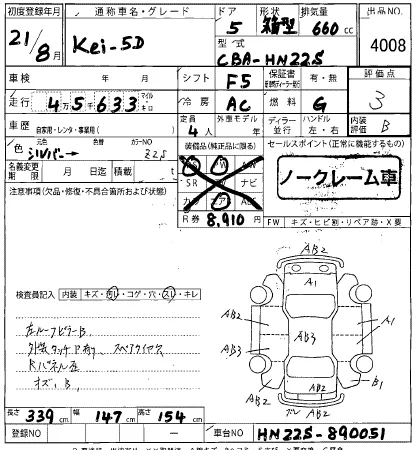 初度登録年月 通称車名・グレード ドア 形状 排気量 出品NO
21/8月 Kei-5D 5 箱型 660cc 4008
型式 CBA-HN22S
車検 年 月 シフト F5 保証書 有・無 評価点
走行 45633 マイル キロ 冷房 AC 燃料 G 3
車歴 自家用・レンタ・事業用( ) 定員 4人 外車モデル 年 ディーラー 並行 ハンドル 左・右 内装評価 B
色 シルバー→ 元色 色替 カラーNO Z2S 装備品(純正品に限る) セールスポイント(正常に機能するもの)
名義変更期限 月 日迄 積載 t SR ナビ ノークレーム車
注意事項(欠品・修復・不具合箇所および状態) カワ エア
R券 8,910円 FW キズ・ヒビ割・リペア跡・X要
検査員記入 内装 キズ・汚レ・コゲ・穴・スレ・キレ
左ルーフピラーB
外装タッチP有り スペアタイヤ欠
Rパネル歪
キズ、B
AB2
A1
AB2 A1
AB2 AB3
AB3 A1
AB2 B1
AB2
長さ 339cm 幅 147cm 高さ 154cm
登録NO 車台NO HN22S-890051